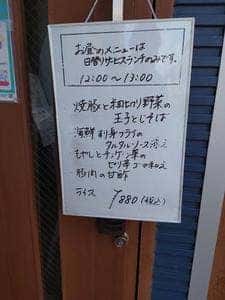 お昼のメニューは
日替りサービスランチのみです。
12:00〜13:00
焼豚と細切り野菜の
玉子とじそば
海鮮 フライの
タルタルソース添え
もやしと 菜の
和え
豚肉の甘酢
ライス
¥880(税込)